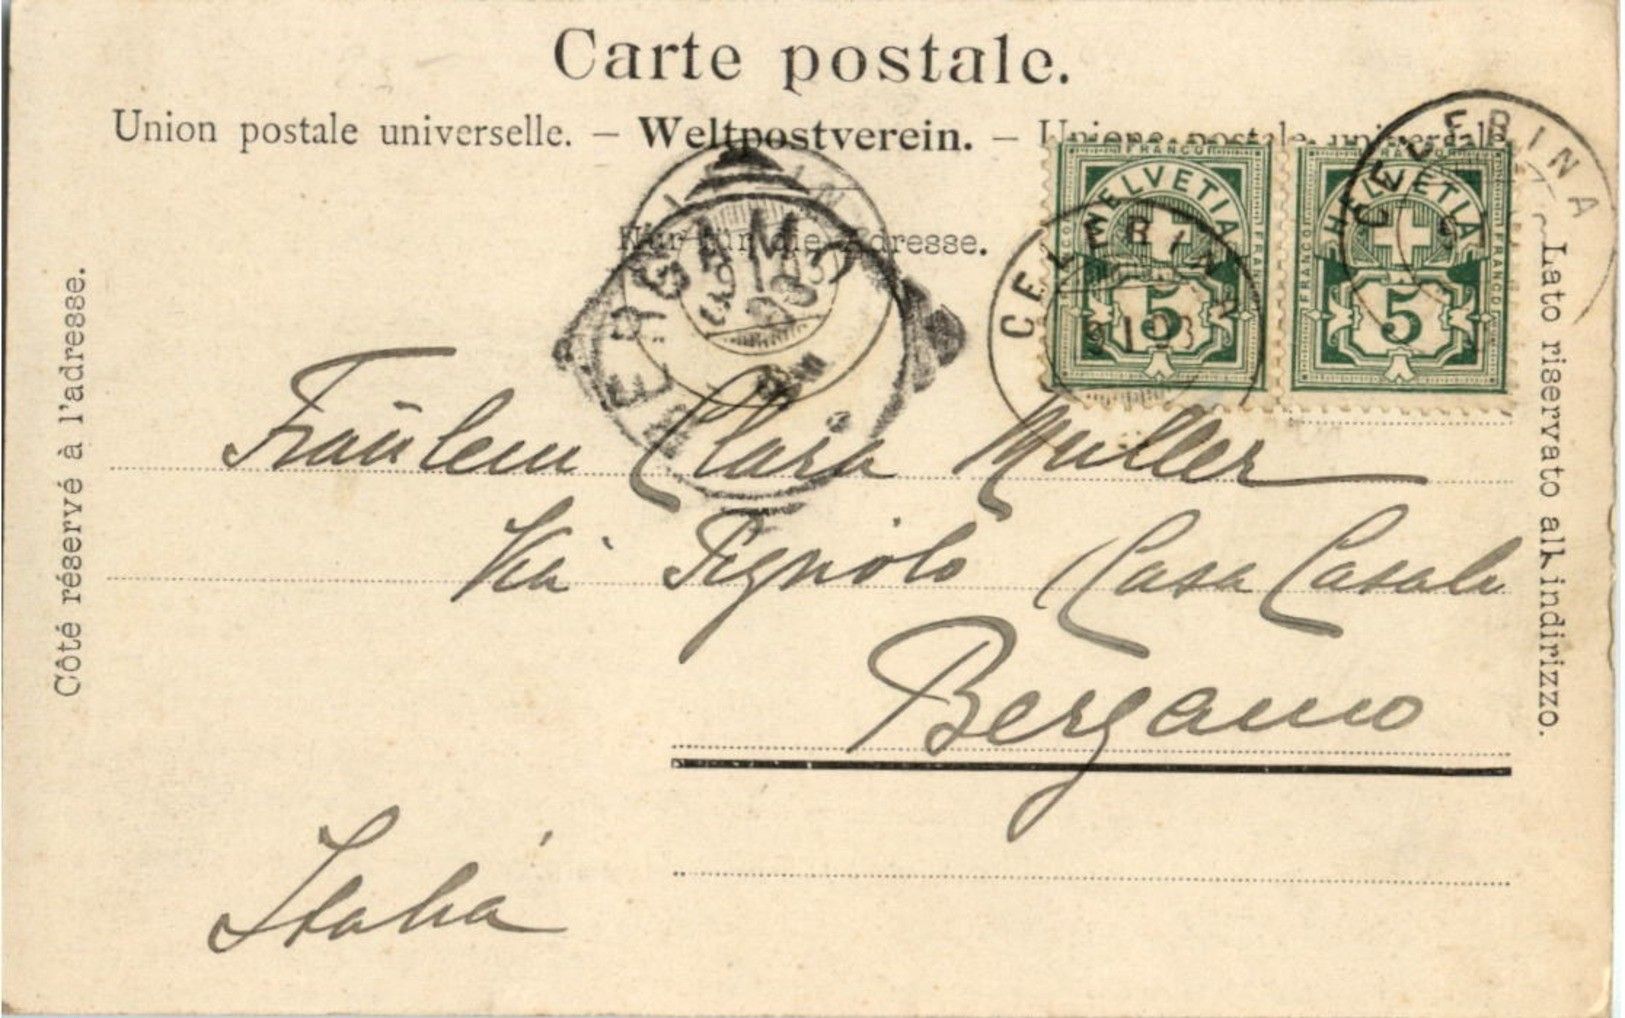 Carte postale.
Union postale universelle. — Weltpostverein. — Unione postale universale
Nur für die Adresse.
Côté réservé à l'adresse.
Lato riservato all'indirizzo.
HELVETIA
FRANCO
5
HELVETIA
FRANCO
5
CELERINA
CELERINA
BERGAMO
Fräulein Clara Müller
Via Pignolo Casa Casale
Bergamo
Italia